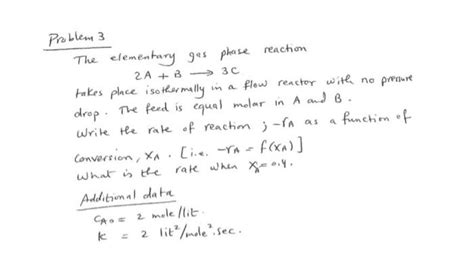 Problem 3
The elementary gas phase reaction
2A + B → 3C
takes place isothermally in a flow reactor with no pressure
drop. The feed is equal molar in A and B.
Write the rate of reaction ; -rA as a function of
conversion, XA. [i.e. -rA = f(XA)]
What is the rate when XA = 0.4.
Additional data
CA0 = 2 mole/lit.
k = 2 lit²/mole².sec.